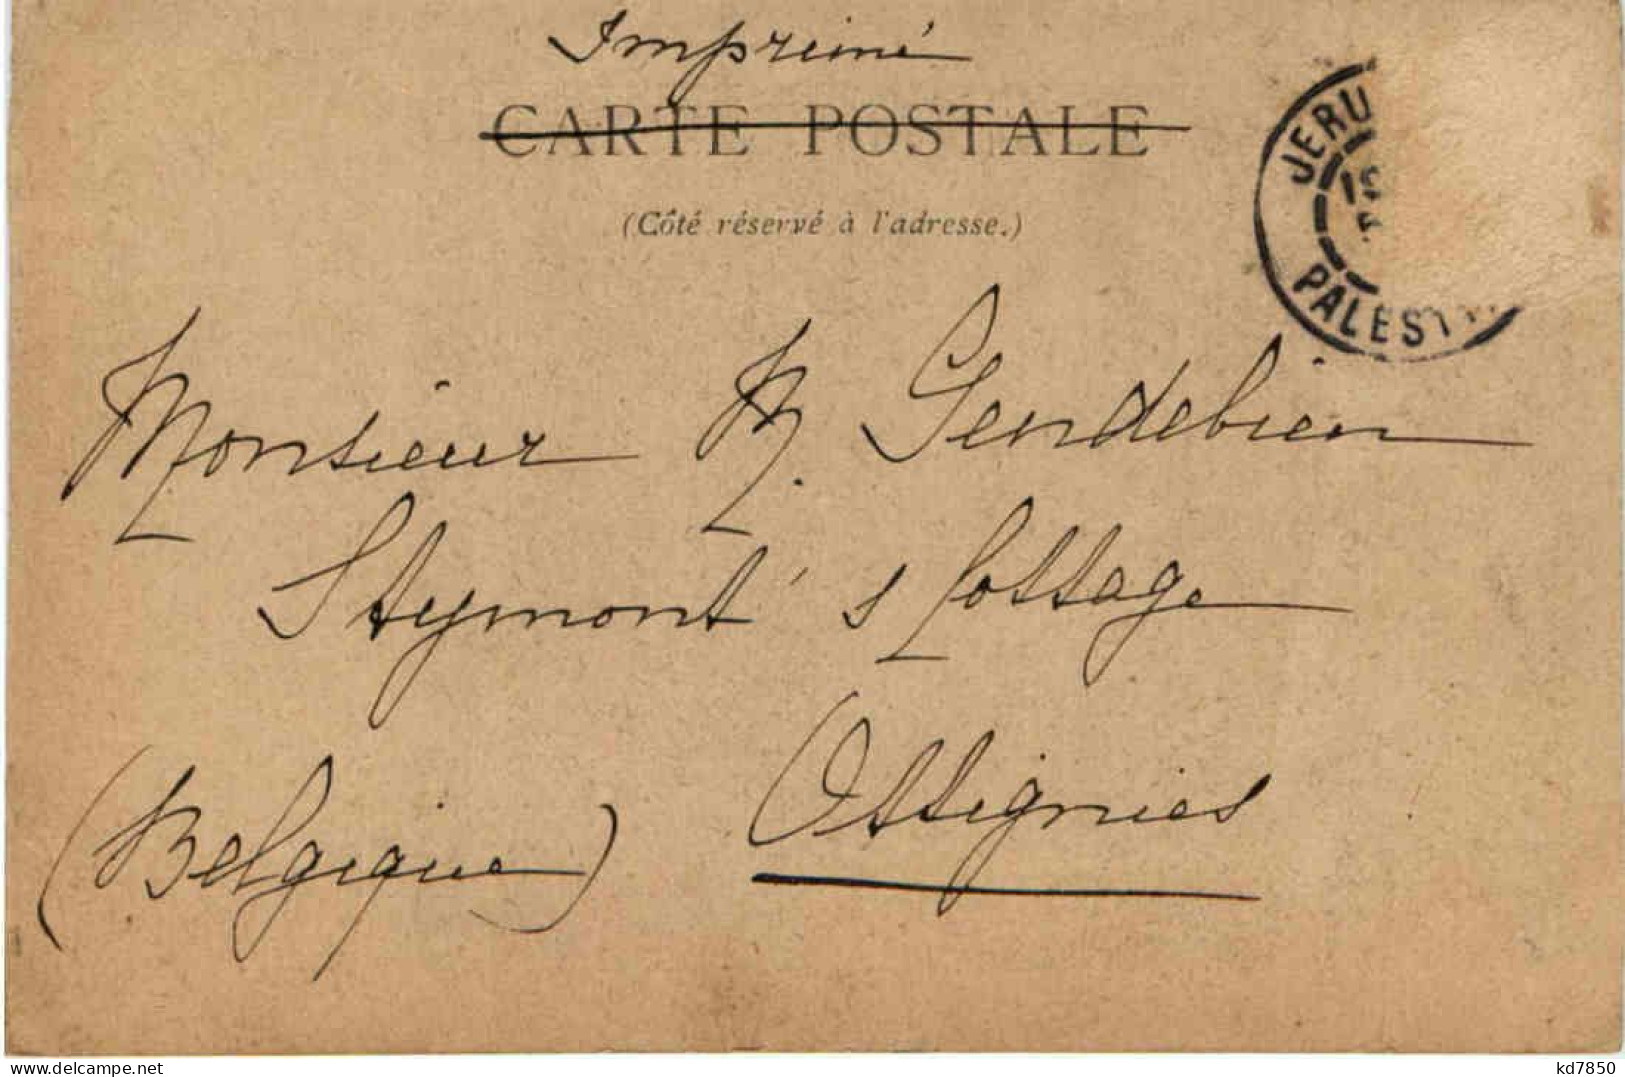 Imprimé
CARTE POSTALE
(Côté réservé à l'adresse.)
JERU
PALESTIN
Monsieur M. Gendebien
Steymont's Cottage
Ottignies
(Belgique)
kd7850